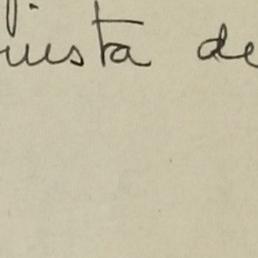 uista de